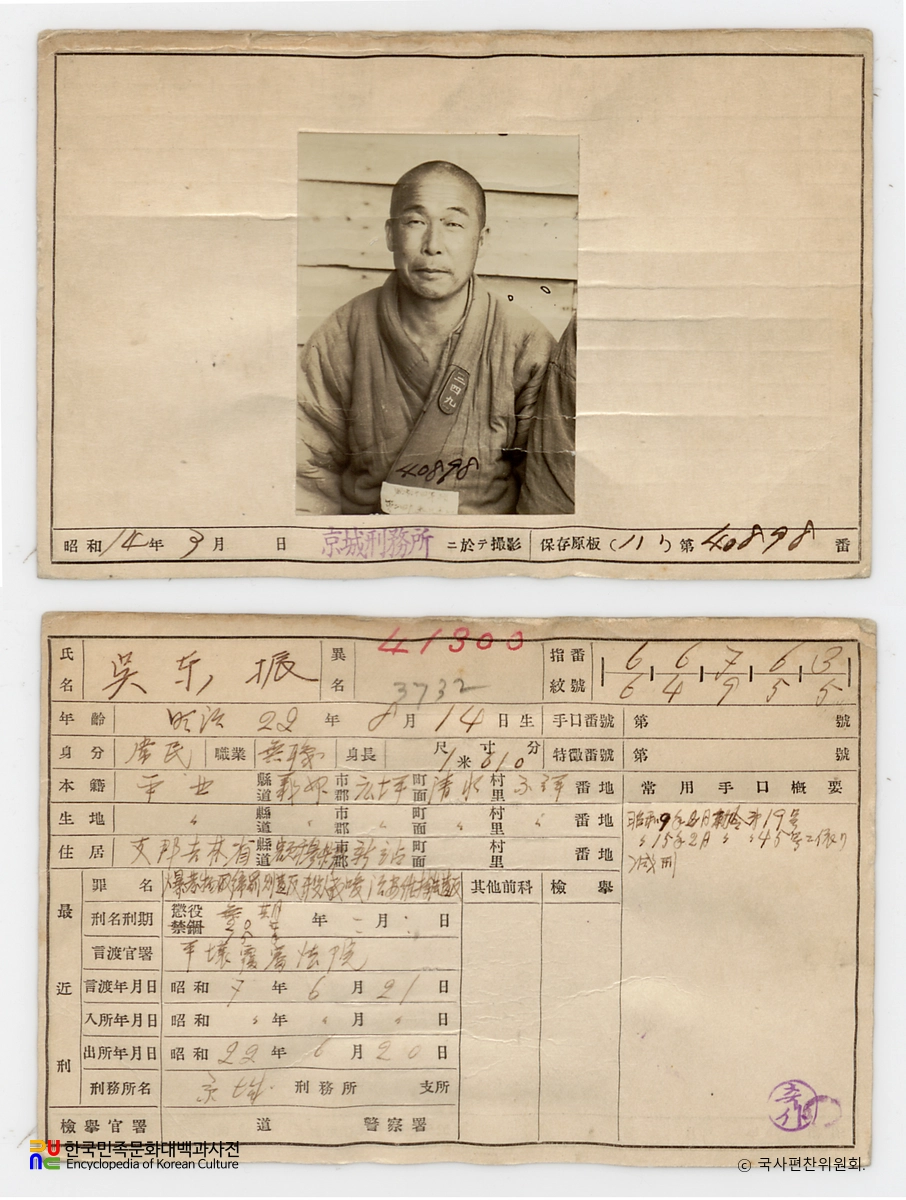 二四九
40898
昭和 14 年 3 月 日 京城刑務所 ニ於テ撮影 保存原板 第 40898 番
41300
氏名 吳東振 異名 3732 指紋番號 6 6 7 6 13
6 4 9 5 5
年齡 明治 22 年 8 月 14 日生 手口番號 第 號
身分 常民 職業 無職 身長 尺 寸 分 1 米 610 特徵番號 第 號
本籍 平北 縣道 市郡 町面 清水 村里 番地 常用手口槪要
生地 〃 縣道 〃 市郡 〃 町面 〃 村里 〃 番地
住居 支那吉林省 縣道 市郡 新站 町面 村里 番地
昭和9年 月 第19號
〃15年2月 〃 〃45號ニ依リ
減刑
最近刑
罪名 其他前科 檢擧
刑名刑期 懲役 禁錮 無期 年 月 日
言渡官署 平壤覆審法院
言渡年月日 昭和 7 年 6 月 21 日
入所年月日 昭和 〃 年 〃 月 〃 日
出所年月日 昭和 22 年 6 月 20 日
刑務所名 京城 刑務所 支所
檢擧官署 道 警察署
한국민족문화대백과사전
Encyclopedia of Korean Culture
ⓒ 국사편찬위원회.